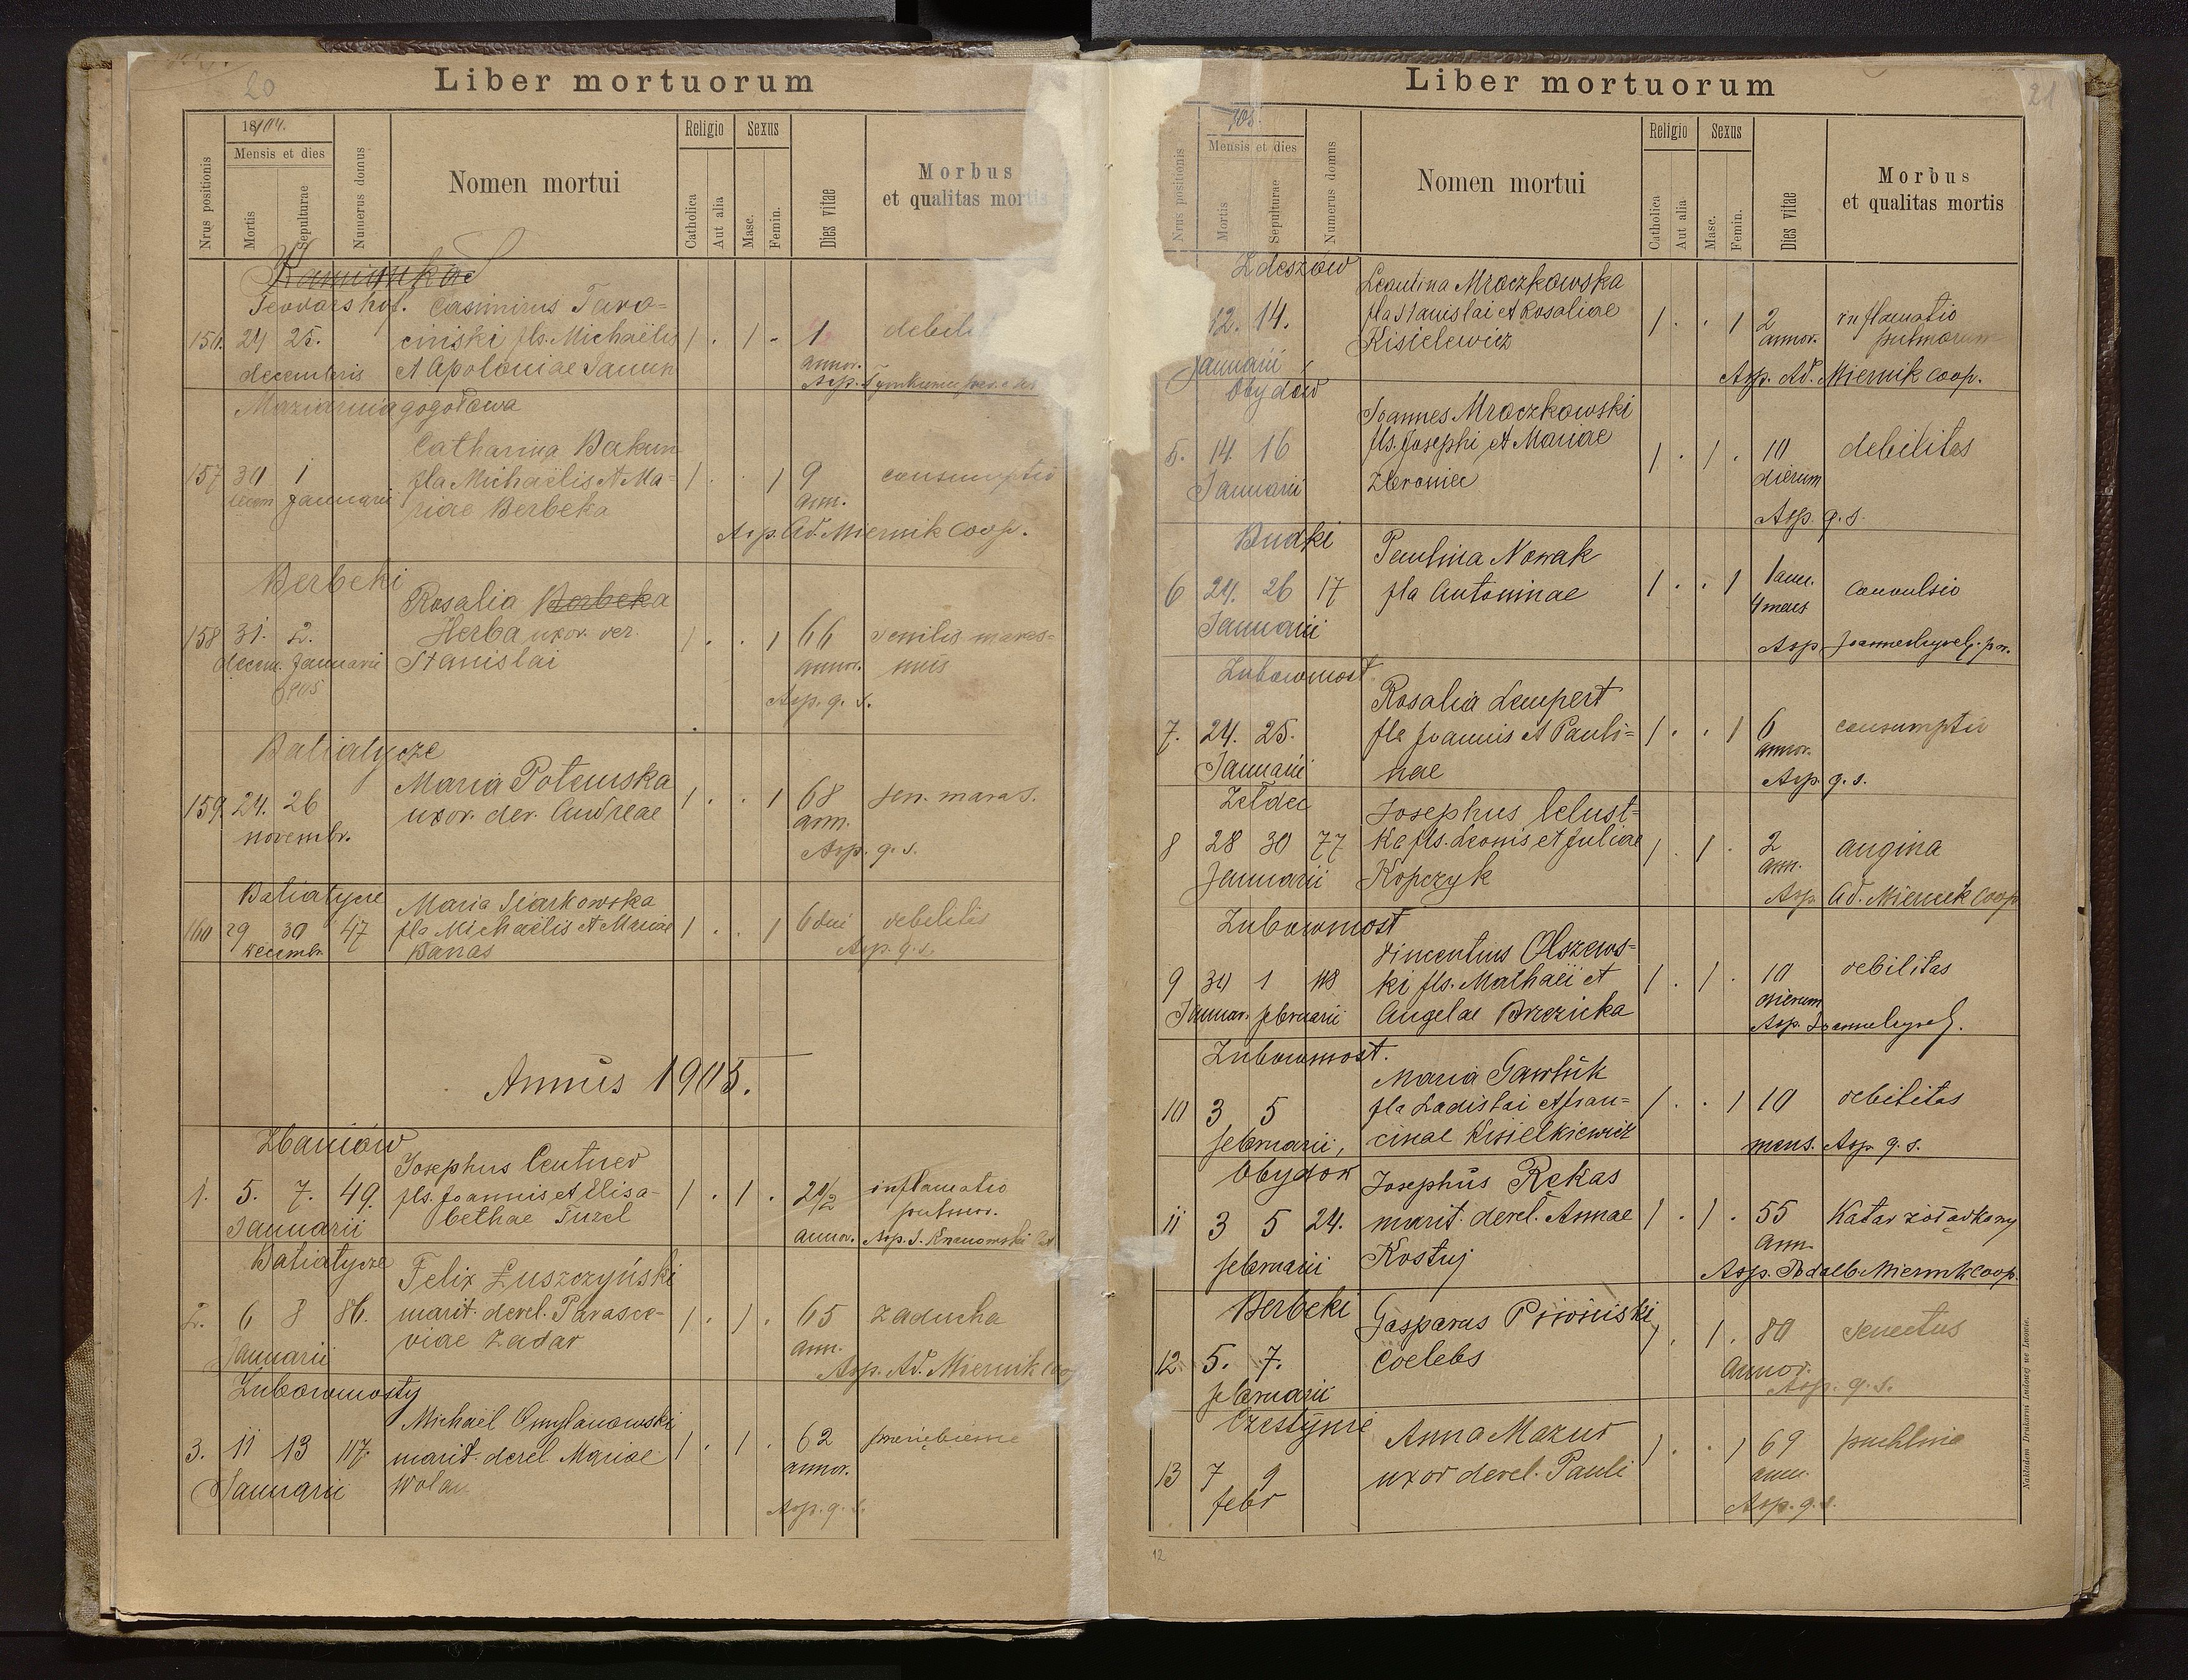 20
Liber mortuorum
1904.
Mensis et dies
Nrus positionis
Mortis
Sepulturae
Numerus domus
Nomen mortui
Religio
Catholica
Aut alia
Sexus
Masc.
Femin.
Dies vitae
Morbus
et qualitas mortis
Teodorshof. Casimirus Taro=
156. 24 25. ciński fls. Michaëlis 1 . 1 . 1 debili
decembris et Apoloniae Janun annor.
Maziarnia gogołowa
Catharina Bakun
157 30 1 fla Michaëlis et Ma= 1 . . 1 9 consumptio
decem Januarii riae Berbeka ann.
Asp. Ad. Miernik coop.
Berbeki
Rosalia Berbeka
158 31. 2. Herba uxor. der. 1 . . 1 66 senilis maras=
decem. Januarii Stanislai annor. mus
1905 Asp. q. s.
Batiatycze
Maria Potemska
159 24. 26 uxor. der. Andreae 1 . . 1 68 sen. maras.
novembr. ann.
Asp. q. s.
Batiatycze Maria Siarkowska
160 29 30 47 fla Michaëlis et Mariae 1 . . 1 6 dni debilitis
decembr. Banas Asp. q. s.
Annus 1905.
Zbaniów
Josephus Centner
1. 5. 7. 49. fls. Joannis et Elisa- 1 . 1 . 2 1/2 inflamatio
Januarii bethae Turel annor. pulmor.
Batiatycze
Felix Łuszczyński
2. 6 8 86. marit. derel. Parasce- 1 . 1 . 65 zaducha
Januarii viae Zadar ann.
Asp. Ad. Miernik coo
Zubowmosty
Michaël Omylanowski
3. 11 13 117. marit. derel. Mariae 1 . 1 . 62
Januarii Wolan annor.
Asp. q. s.
21
Liber mortuorum
905.
Mensis et dies
Nrus positionis
Mortis
Sepulturae
Numerus domus
Nomen mortui
Religio
Catholica
Aut alia
Sexus
Masc.
Femin.
Dies vitae
Morbus
et qualitas mortis
Zdeszów Leontina Mroczkowska
12. 14. fla Stanislai et Rosaliae 1 . . 1 2 inflamatio
Januarii Kisielewicz annor. pulmorum
Asp. Ad. Miernik coop.
Obydów
Joannes Mroczkowski
5. 14. 16 fls. Josephi et Mariae 1 . 1 . 10 debilitas
Januarii dierum
Asp. q. s.
Budki Paulina Nowak
6 24. 26 17 fla Antoninae 1 . . 1 1 ann. convulsio
Januarii 4 mens
Zubowmost
Rosalia Lempert
7. 24. 25. fla Joannis et Pauli= 1 . . 1 6 consumptio
Januarii nae annor.
Asp. q. s.
Żełdec Josephus Celust=
8 28 30 77 ka fls. Leonis et Juliae 1 . 1 . 2 angina
Januarii Kopczyk ann.
Asp. Ad. Miernik coop
Zubowmost
Vincentius Olszews=
9 30 1 118 ki fls. Mathaei et 1 . 1 . 10 debilitas
Januar. februarii Angelae Brzezicka dierum
Zubowmost.
Maria Gawluk
10 3 5 fla Ladislai et fran= 1 . . 1 10 debilitas
februarii, ciscae Kisielkiewicz mens. Asp. q. s.
Obydow Josephus Rekas
11 3 5 24. marit. derel. Annae 1 . 1 . 55 Katar żołądkowy
februarii Kostuj ann.
Asp. Adalb. Miernik coop.
Berbeki Gasparus Piwiński
12. 5. 7. coelebs 1 . 1 . 80 senectus
februarii annor.
Asp. q. s.
Czestynie Anna Mazur
13 7 9 uxor derel. Pauli 1 . . 1 69 puchlina
febr ann.
Asp. q. s.
Nakładem Drukarni Ludowej we Lwowie.
12